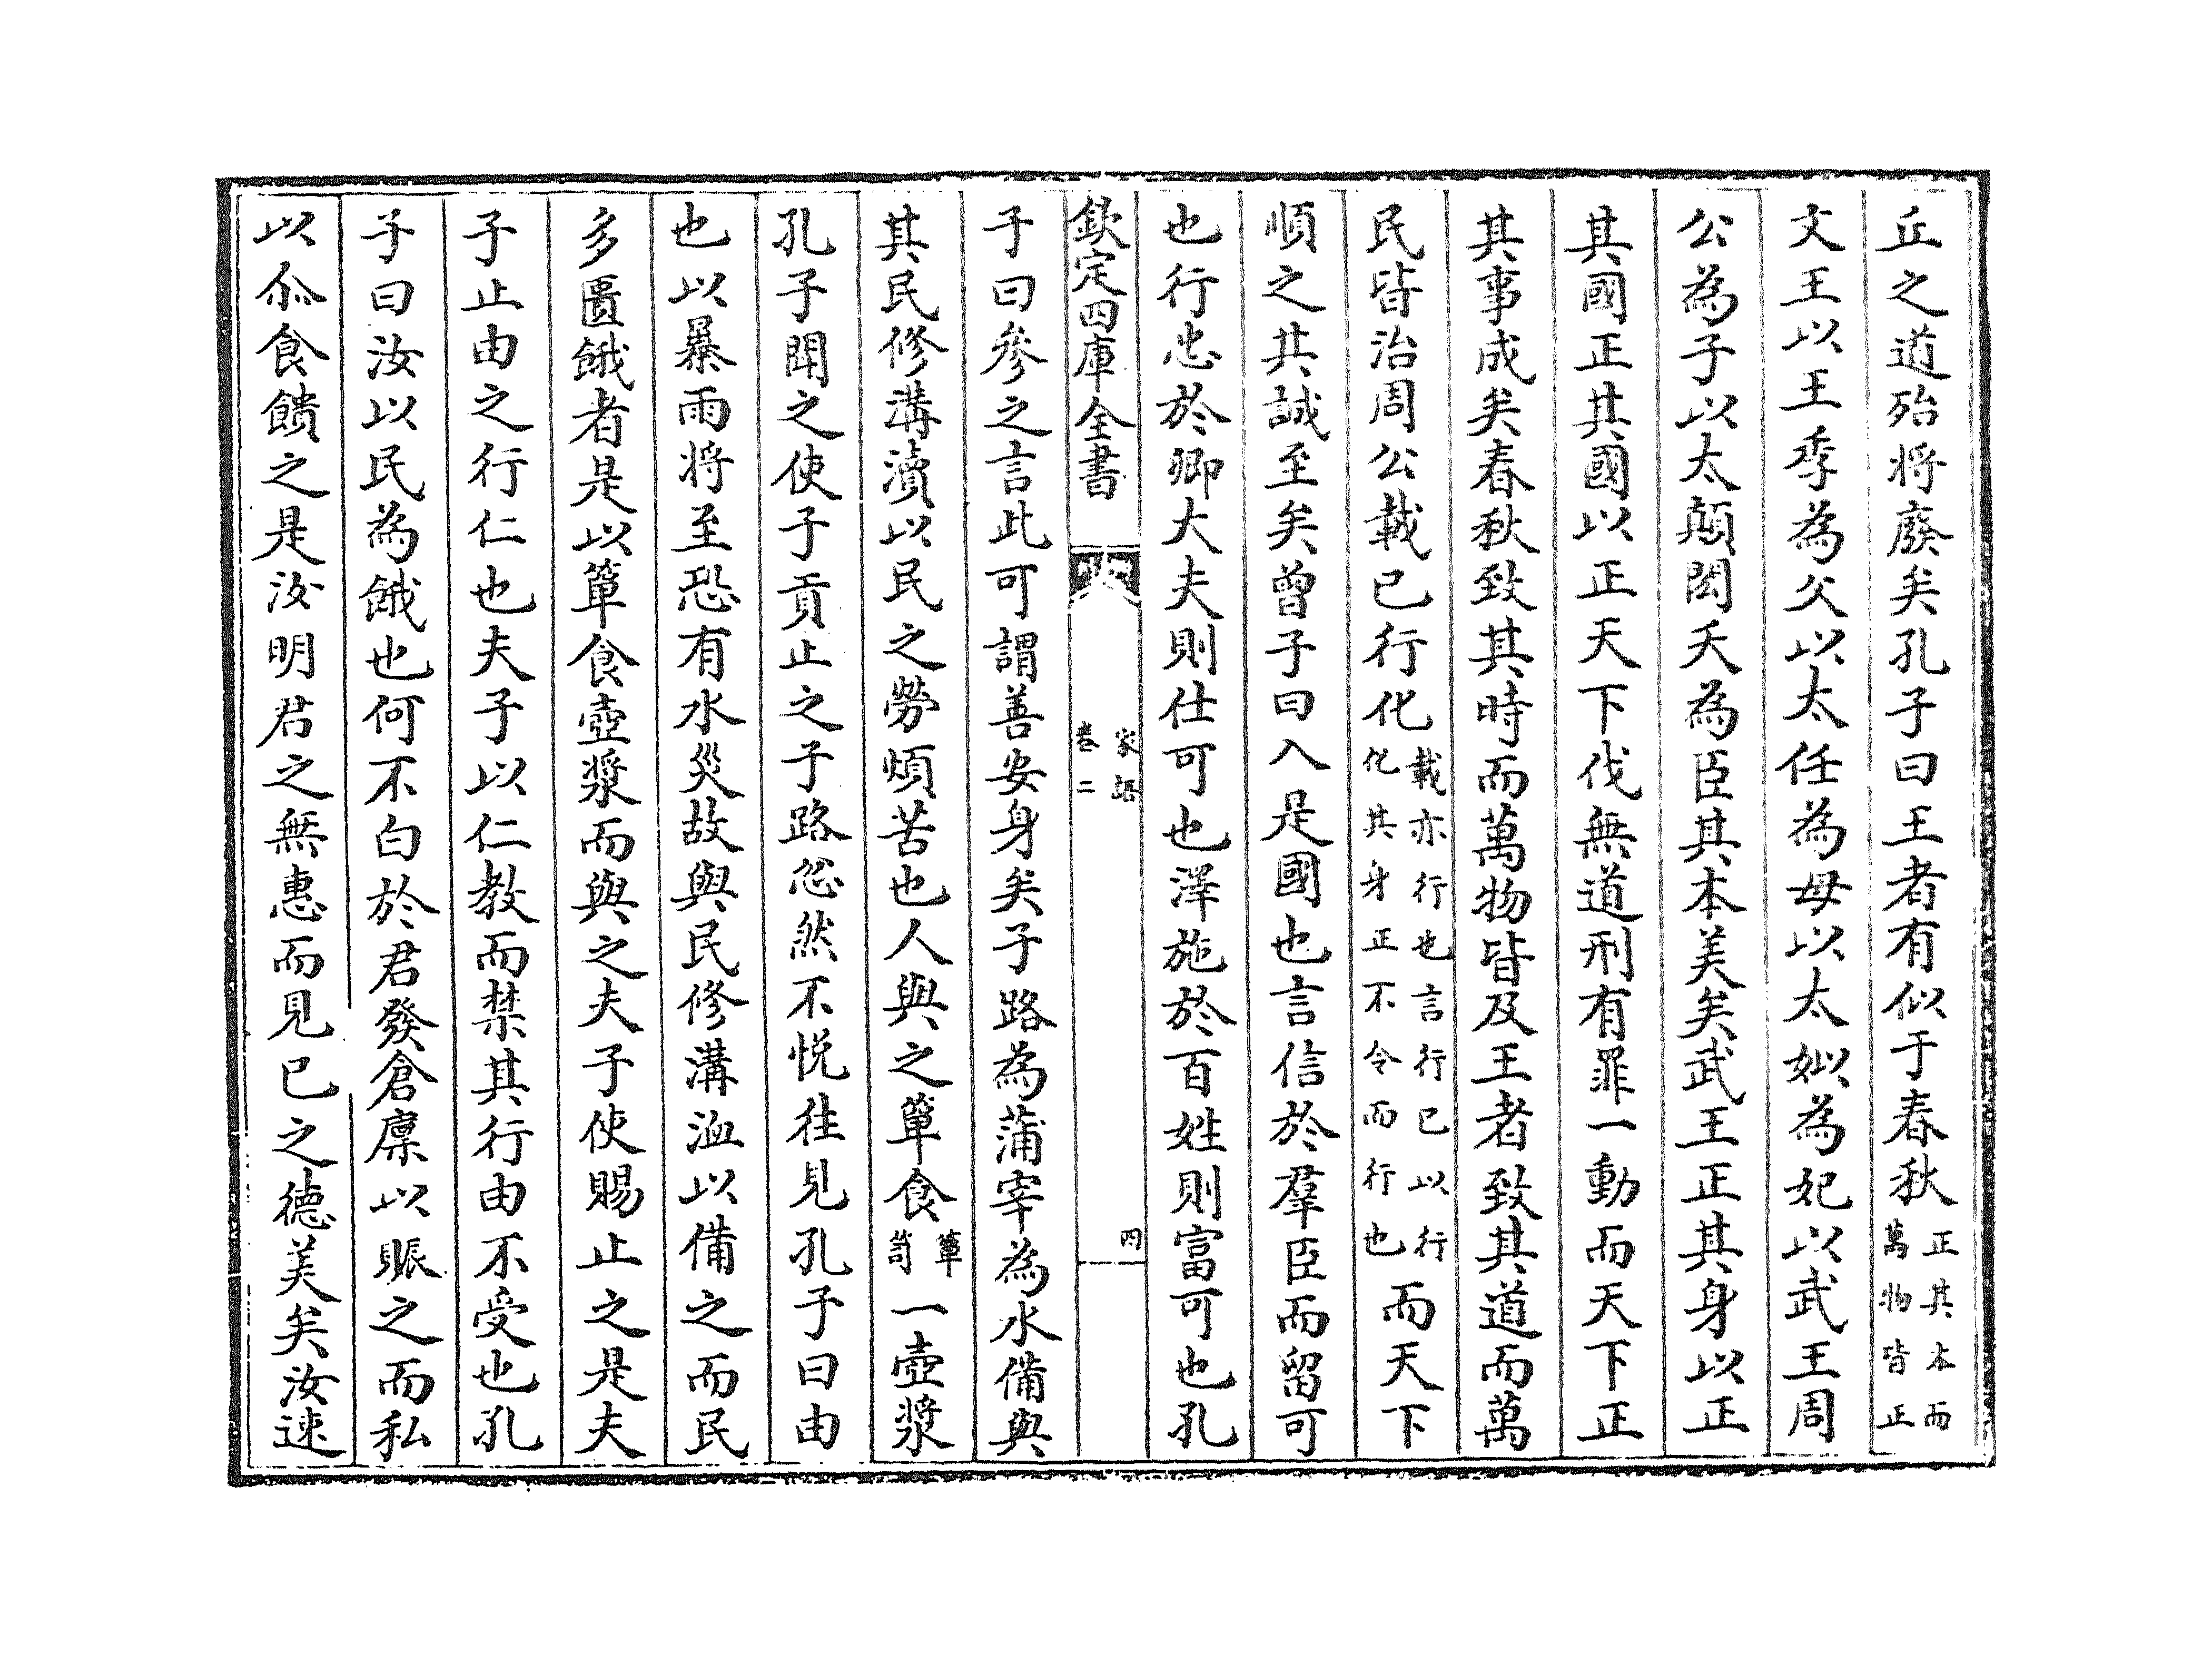 丘之道殆將廢矣孔子曰王者有似于春秋正其本而萬物皆正
文王以王季為父以太任為母以太姒為妃以武王周
公為子以太顛閎夭為臣其本美矣武王正其身以正
其國正其國以正天下伐無道刑有罪一動而天下正
其事成矣春秋致其時而萬物皆及王者致其道而萬
民皆治周公載已行化載亦行也言行已以行化其身正不令而行也而天下
順之其誠至矣曾子曰入是國也言信於羣臣而留可
也行忠於卿大夫則仕可也澤施於百姓則富可也孔
欽定四庫全書 家語卷二 四
子曰參之言此可謂善安身矣子路為蒲宰為水備與
其民修溝瀆以民之勞煩苦也人與之簞食簞笥一壺漿
孔子聞之使子貢止之子路忿然不悅往見孔子曰由
也以暴雨將至恐有水災故與民修溝洫以備之而民
多匱餓者是以簞食壺漿而與之夫子使賜止之是夫
子止由之行仁也夫子以仁教而禁其行由不受也孔
子曰汝以民為餓也何不白於君發倉廩以賑之而私
以尒食饋之是汝明君之無惠而見已之德美矣汝速